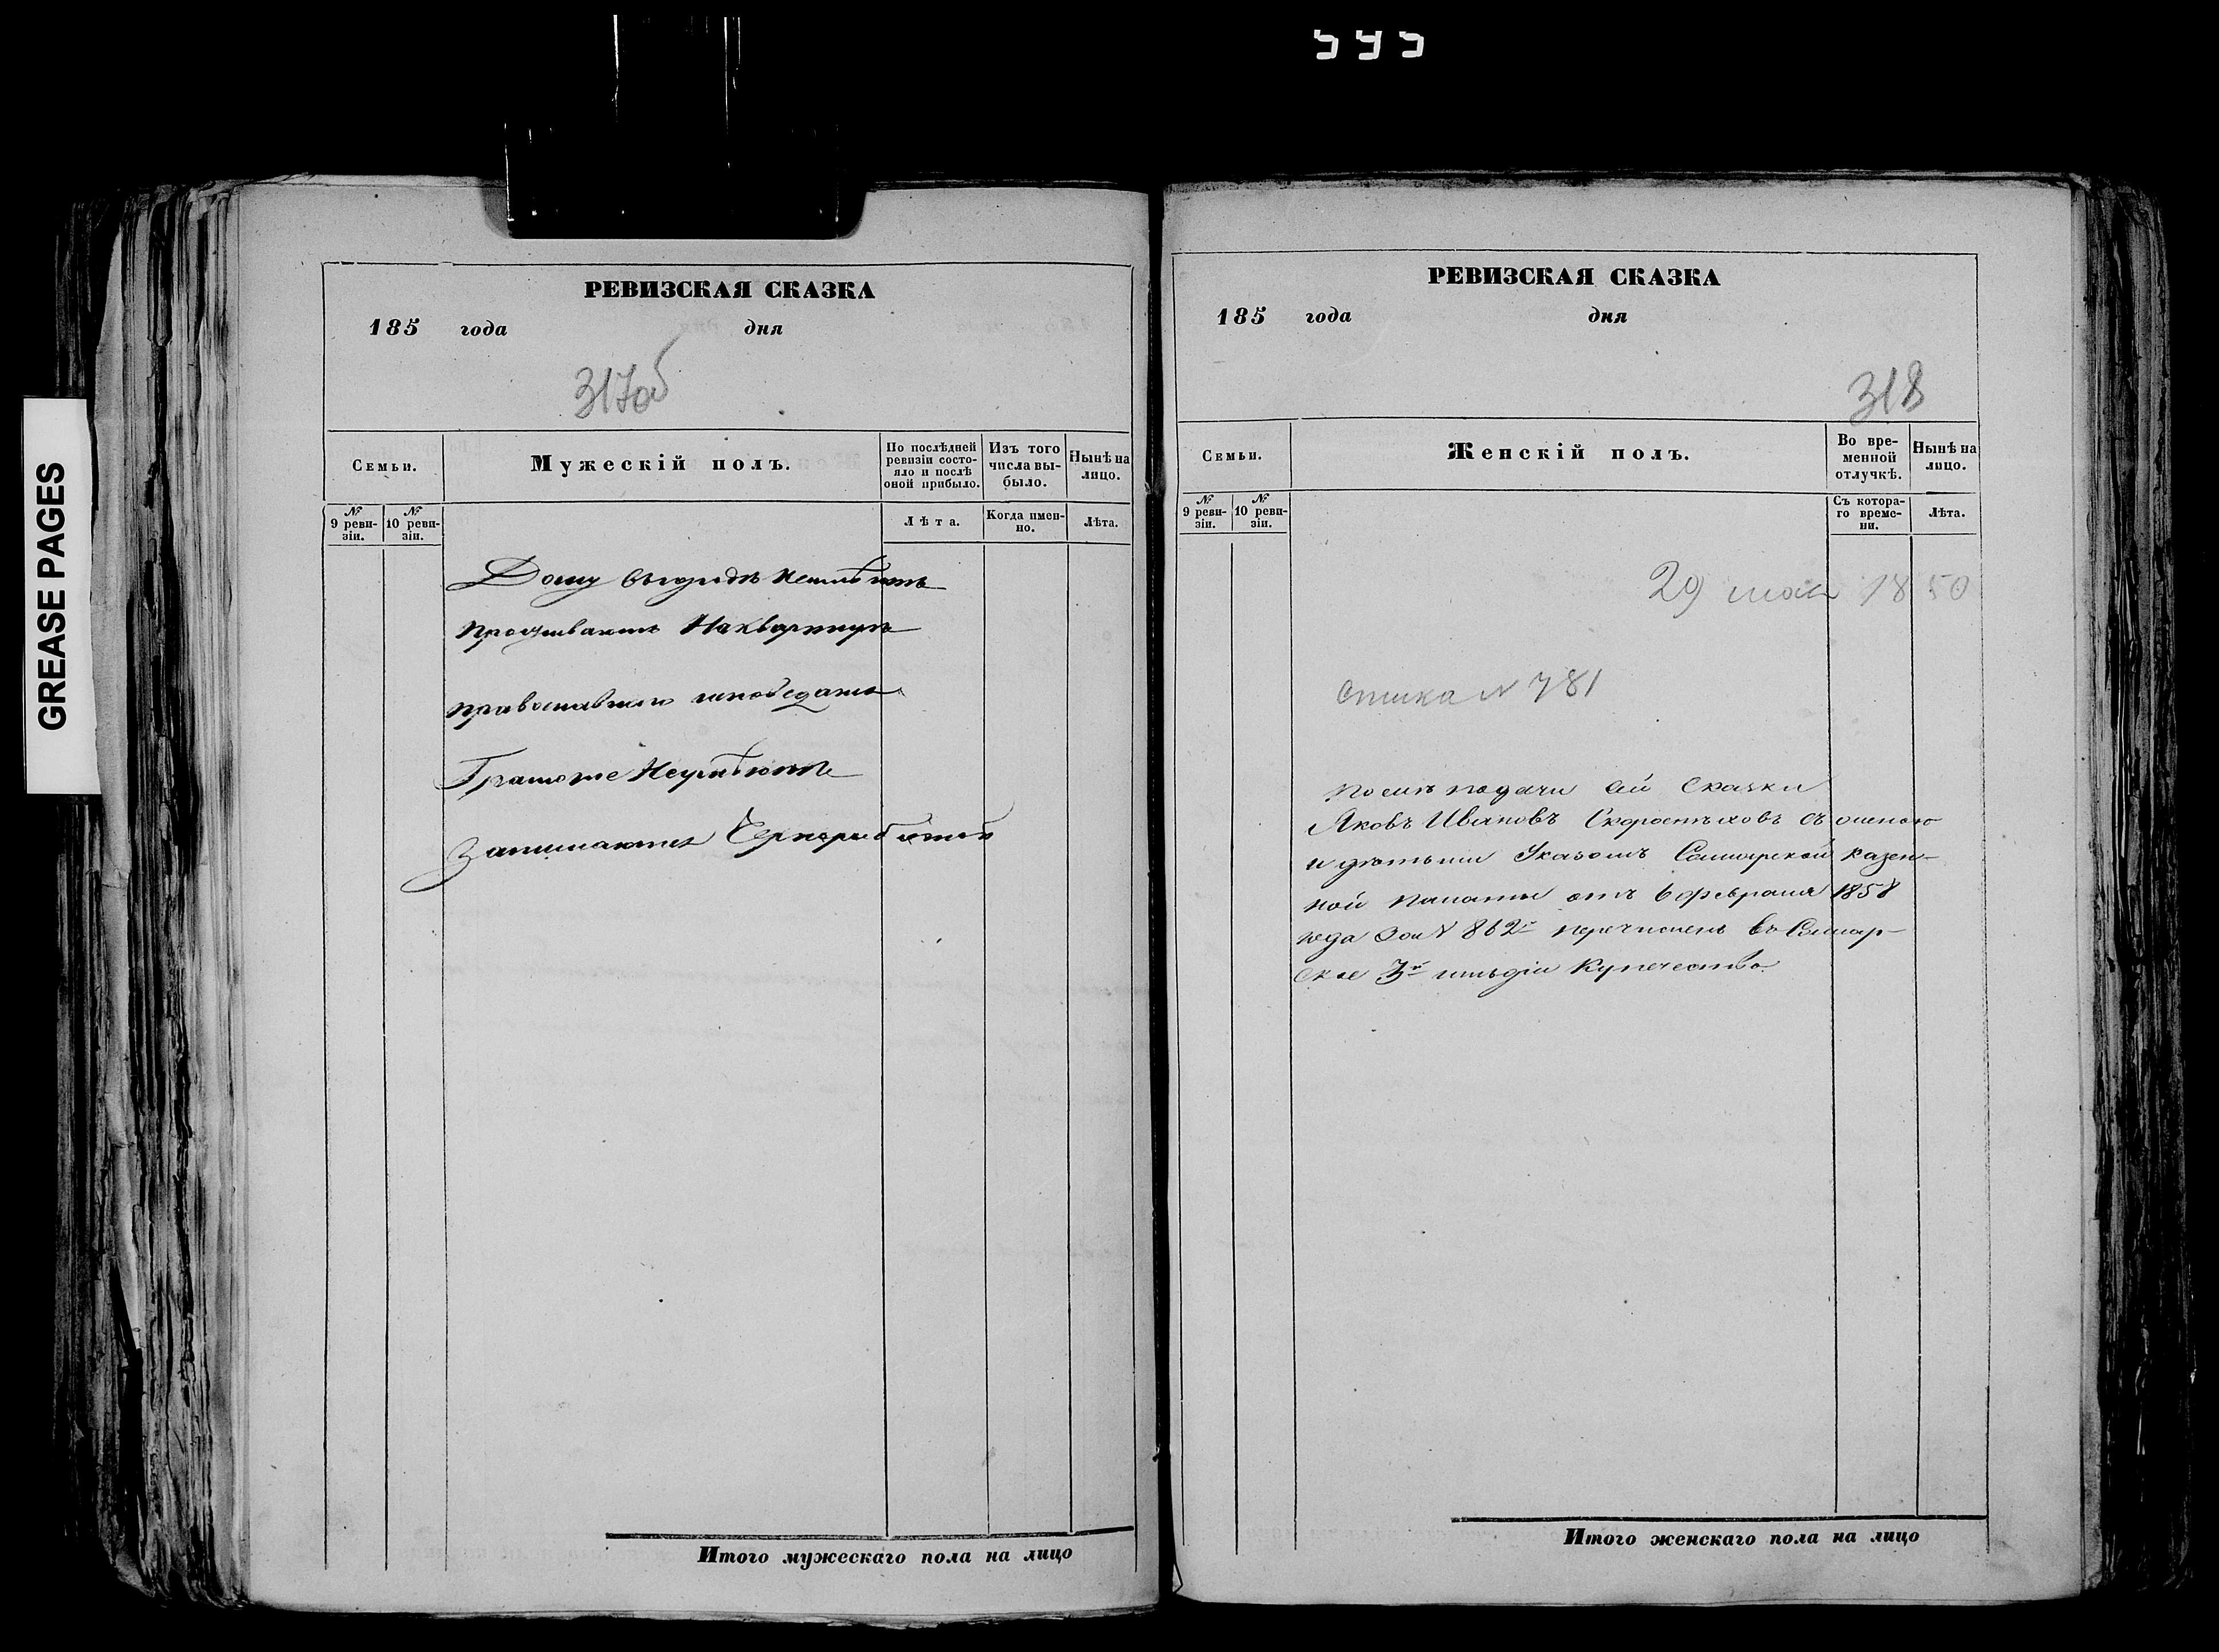 595
GREASE PAGES
РЕВИЗСКАЯ СКАЗКА
185 года дня
317об
Семьи.
Мужескій полъ.
По послѣдней ревизіи состояло и послѣ оной прибыло.
Изъ того числа выбыло.
Нынѣ на лицо.
№ 9 ревизіи.
№ 10 ревизіи.
Лѣта.
Когда именно.
Лѣта.
Дому въ городѣ неимѣютъ
проживаютъ На квартирѣ
православнаго исповеданія
Грамоте Неумѣютъ
Занимаются
Итого мужескаго пола на лицо
РЕВИЗСКАЯ СКАЗКА
185 года дня
318
Семьи.
Женскій полъ.
Во временной отлучкѣ.
Нынѣ на лицо.
№ 9 ревизіи.
№ 10 ревизіи.
Съ котораго времени.
Лѣта.
29 мая 1850
N 781
Послѣ подачи сей сказки
Яковъ Ивановъ съ женою
и дѣтьми Указомъ Самарской Казен-
ной Палаты отъ 6 февраля 1858
года за N 862м перечисленъ въ Самар-
ское 3й гильдіи Купечество
Итого женскаго пола на лицо